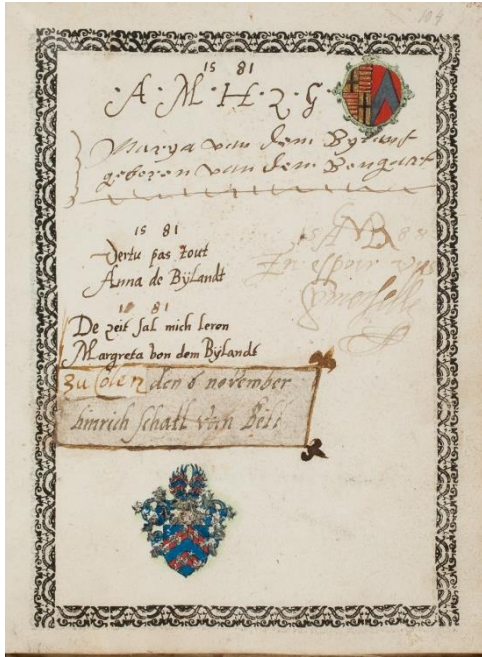 104
15 81
·A·M·H·2·G
Marya van dem Bylant
geboren van dem Bongart
15 81
Vertu pas tout
Anna de Bÿlandt
15 81
De zeit sal mich leron
Margreta von dem Bÿlandt
15 88
Zu Colen den 6 november
hinrich schall van Bell